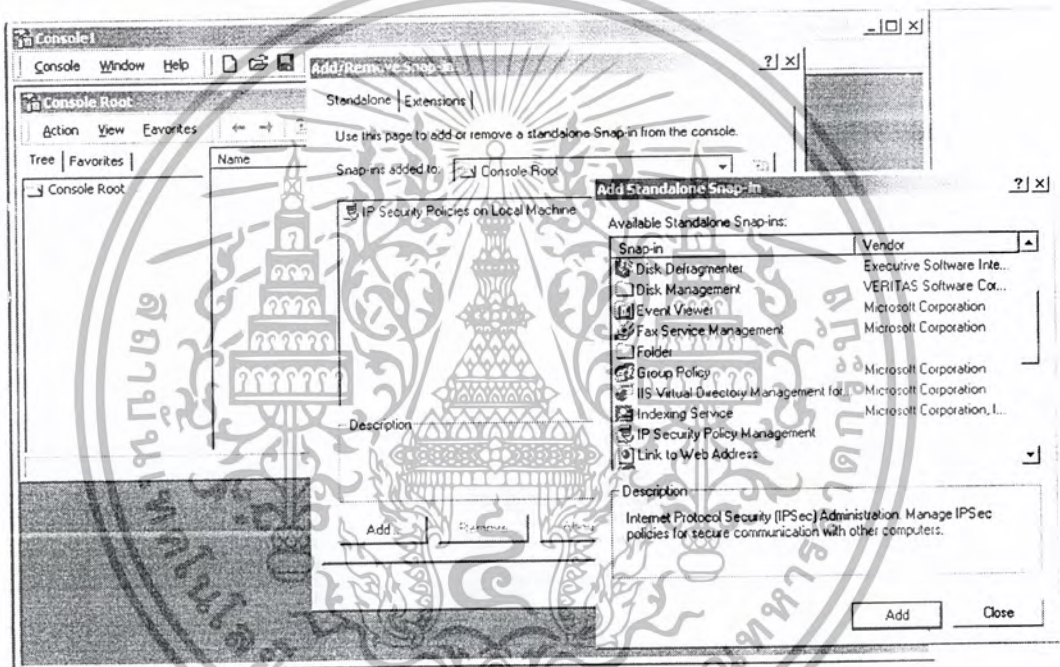 Console1
Console Window Help
Console Root
Action View Favorites
Tree Favorites
Name
Console Root
Add/Remove Snap-in
Standalone Extensions
Use this page to add or remove a standalone Snap-in from the console.
Snap-ins added to: Console Root
IP Security Policies on Local Machine
Description
Add... Remove
Add Standalone Snap-in
Available Standalone Snap-ins:
Snap-in Vendor
Disk Defragmenter Executive Software Inte...
Disk Management VERITAS Software Cor...
Event Viewer Microsoft Corporation
Fax Service Management Microsoft Corporation
Folder
Group Policy Microsoft Corporation
IIS Virtual Directory Management for... Microsoft Corporation
Indexing Service Microsoft Corporation, I...
IP Security Policy Management
Link to Web Address
Description
Internet Protocol Security (IPSec) Administration. Manage IPSec
policies for secure communication with other computers.
Add Close